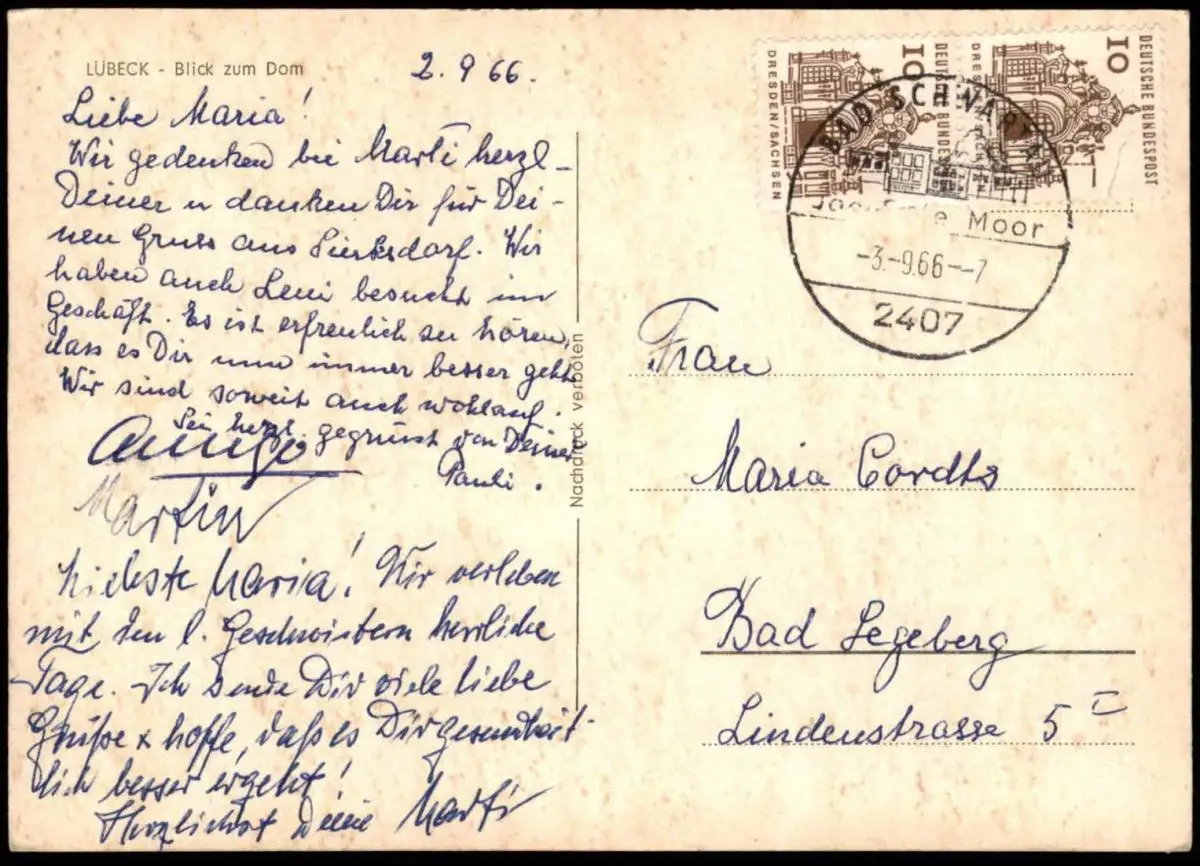 LÜBECK - Blick zum Dom
2. 9 66.
Liebe Maria!
Wir gedenken bei Marti herzl-
Deiner u danken Dir für Dei-
nen Gruss aus Sierksdorf. Wir
haben auch Leni besucht im
Geschäft. Es ist erfreulich zu hören,
dass es Dir nun immer besser geht.
Wir sind soweit auch wohlauf.
Sei herzl. gegrüsst von Deiner
Pauli.
Martin
Liebste Maria! Wir verleben
mit den l. Geschwistern herrliche
Tage. Ich sende Dir viele liebe
Grüße & hoffe, daß es Dir gesundheit-
lich besser ergeht!
Herzlichst Deine Marti
Nachdruck verboten
10
DEUTSCHE BUNDESPOST
DRESDEN/SACHSEN
10
DEUTSCHE BUNDESPOST
BAD SCHWAR
Moor
-3.-9.66--7
2407
Frau
Maria Cordts
Bad Segeberg
Lindenstrasse 5 I